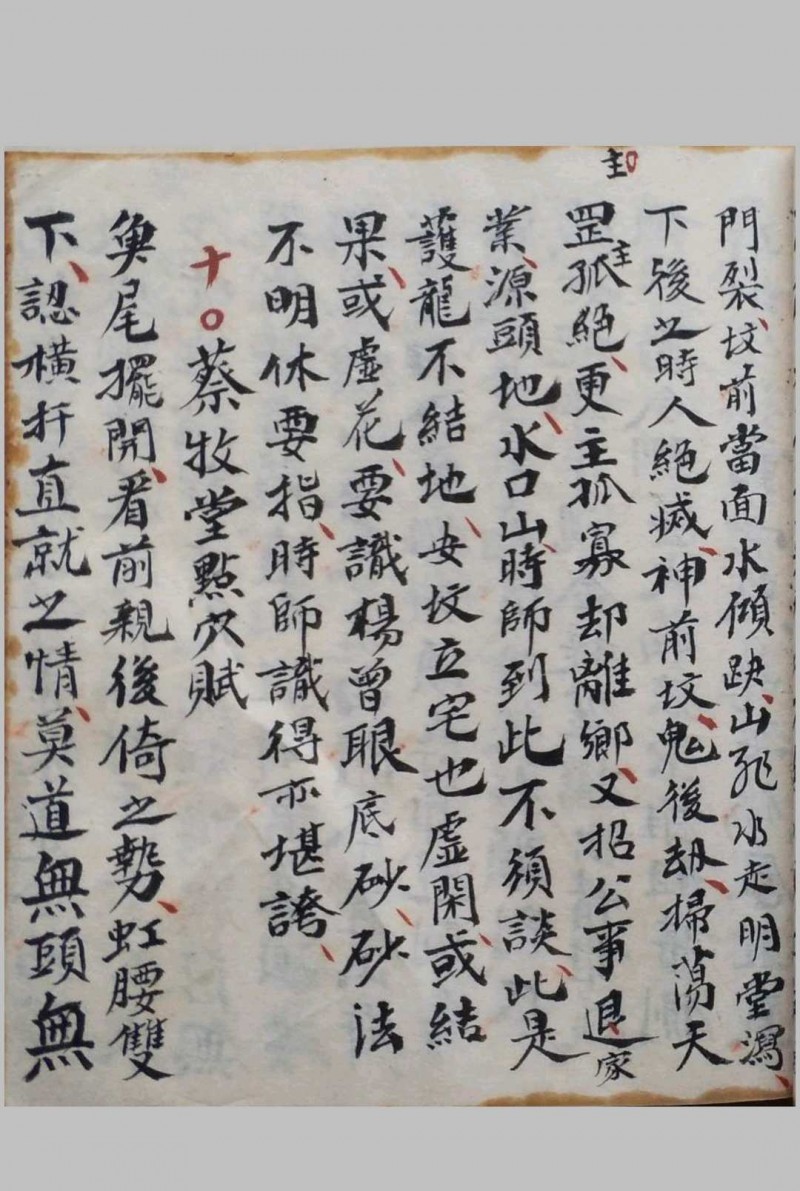 主
門裂坟前當面水傾跌山飛水走明堂瀉
下後之時人絕滅神前坟鬼後劫掃蕩天
罡主孤絕更主孤寡却離鄉又招公事退家
業源頭地水口山時師到此不須談此是
護龍不結地安坟立宅也虛閑或結
果或虛花要識楊曾眼底砂砂法
不明休要指時師識得亦堪誇
十〇蔡牧堂點穴賦
魚尾擺開看前親後倚之勢虹腰雙
下認橫扦直就之情莫道無頭無